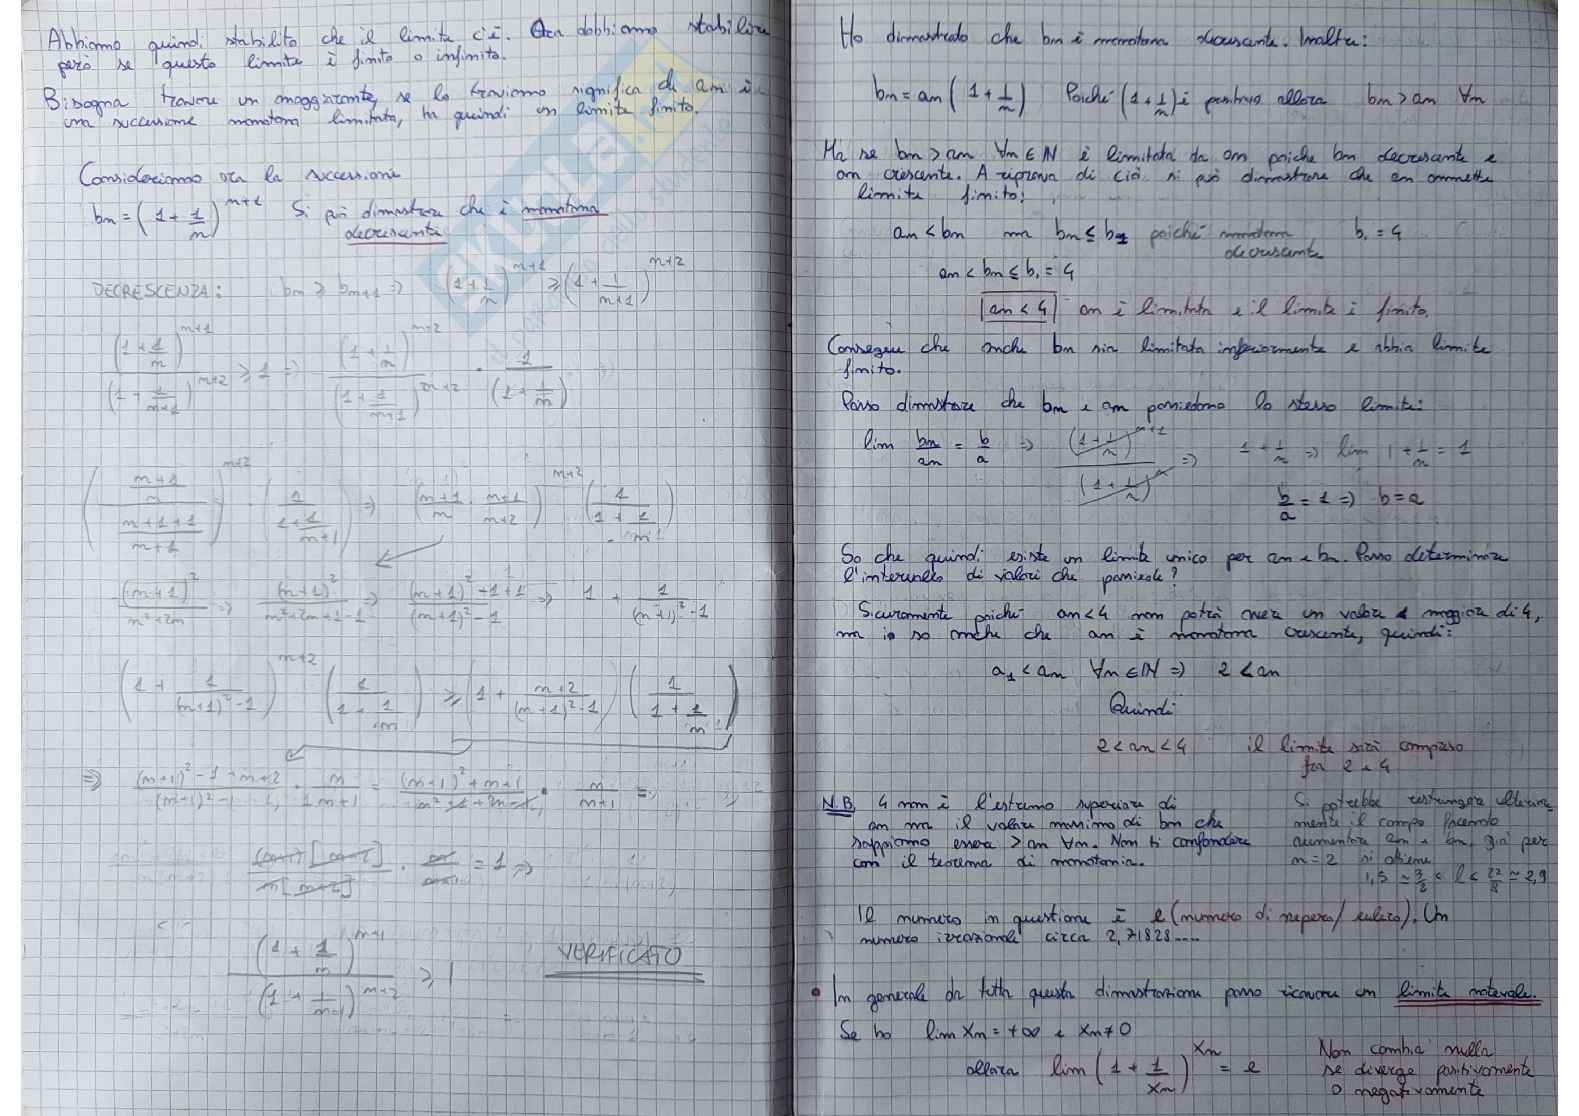 Abbiamo quindi stabilito che il limite c'è. Ora dobbiamo stabilire
però se questo limite è finito o infinito.
Bisogna trovare un maggiorante, se lo troviamo significa che an è
una successione monotona limitata, ha quindi un limite finito.
Consideriamo ora la successione
bn = (1 + 1/n)^n+1 Si può dimostrare che è monotona
decrescente
DECRESCENZA: bn ≥ bn+1 => (1 + 1/n)^n+1 ≥ (1 + 1/n+1)^n+2
(1 + 1/n)^n+1 / (1 + 1/n+1)^n+2 ≥ 1 => (1 + 1/n)^n+2 / (1 + 1/n+1)^n+2 · 1/(1 + 1/n)
((n+1/n) / (n+1+1/n+1))^n+2 · (1/(1 + 1/n+1)) => (n+1/n · n+1/n+2)^n+2 (1/(1 + 1/n))
(n+1)²/n²+2n => (n+1)²/n²+2n+1-1 => (n+1)²-1+1/(n+1)²-1 => 1 + 1/(n+1)²-1
(1 + 1/(n+1)²-1)^n+2 (1/(1 + 1/n)) ≥ (1 + n+2/(n+1)²-1) (1/(1 + 1/n))
=> (n+1)²-1+n+2/(n+1)²-1 · n/n+1 = (n+1)²+n+1/n²+1+2n-1 · n/n+1 =>
(n+1)[n+2]/n[n+2] · n/n+1 = 1 =>
(1 + 1/n)^n+1 / (1 + 1/n+1)^n+2 ≥ 1 VERIFICATO
Ho dimostrato che bn è monotona decrescente. Inoltre:
bn = an (1 + 1/n) Poiché (1 + 1/n) è positivo allora bn > an ∀n
Ma se bn > an ∀n ∈ N è limitata da an poiché bn decrescente e
an crescente. A riprova di ciò si può dimostrare che an ammette
limite finito:
an < bn ma bn ≤ b1 poiché monotona b1 = 4
decrescente
an < bn ≤ b1 = 4
an < 4 an è limitata e il limite è finito.
Consegue che anche bn sia limitata inferiormente e abbia limite
finito.
Posso dimostrare che bn e an possiedono lo stesso limite:
lim bn/an = b/a => (1 + 1/n)^n+1 / (1 + 1/n)^n => 1 + 1/n => lim 1 + 1/n = 1
b/a = 1 => b = a
So che quindi esiste un limite unico per an e bn. Posso determinare
l'intervallo di valori che possiede?
Sicuramente poiché an < 4 non potrà avere un valore maggiore di 4,
ma io so anche che an è monotona crescente, quindi:
a1 < an ∀n ∈ N => 2 < an
Quindi
2 < an < 4 il limite sarà compreso
fra 2 e 4
N.B. 4 non è l'estremo superiore di
an ma il valore massimo di bn che
sappiamo essere > an ∀n. Non ti confondere
con il teorema di monotonia.
Si potrebbe restringere ulterior-
mente il campo facendo
aumentare an e bn, già per
n = 2 si ottiene
1,5 ≃ 3/2 < l < 27/8 ≃ 2,9
Il numero in questione è e (numero di nepero/ eulero). Un
numero irrazionale circa 2,71828....
• In generale da tutta questa dimostrazione posso ricavare un limite notevole.
Se ho lim xn = +∞ e xn ≠ 0
allora lim (1 + 1/xn)^xn = e
Non cambia nulla
se diverge positivamente
o negativamente